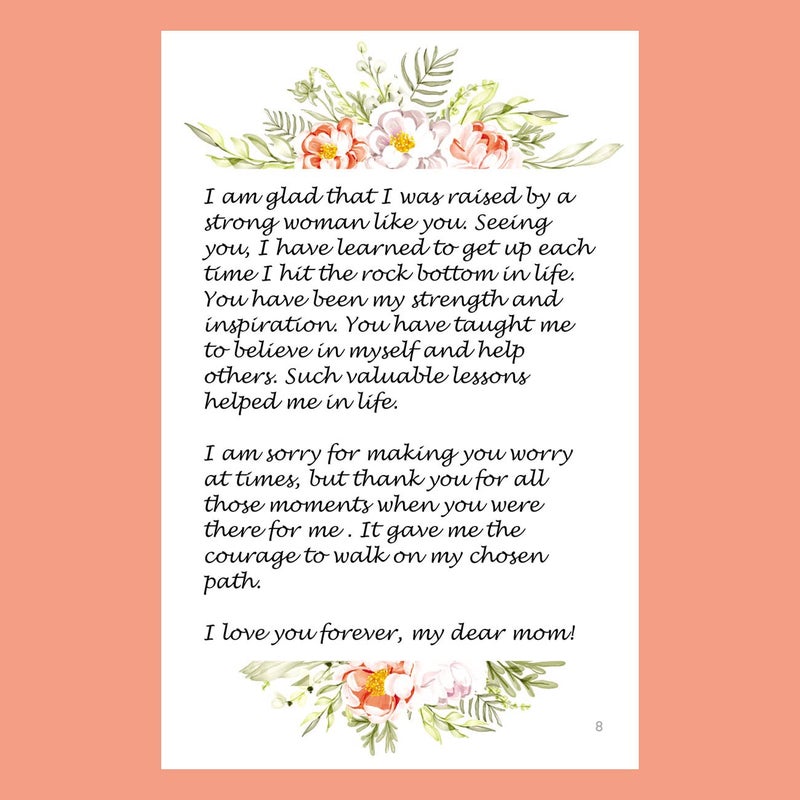 I am glad that I was raised by a
strong woman like you. Seeing
you, I have learned to get up each
time I hit the rock bottom in life.
You have been my strength and
inspiration. You have taught me
to believe in myself and help
others. Such valuable lessons
helped me in life.
I am sorry for making you worry
at times, but thank you for all
those moments when you were
there for me . It gave me the
courage to walk on my chosen
path.
I love you forever, my dear mom!
8